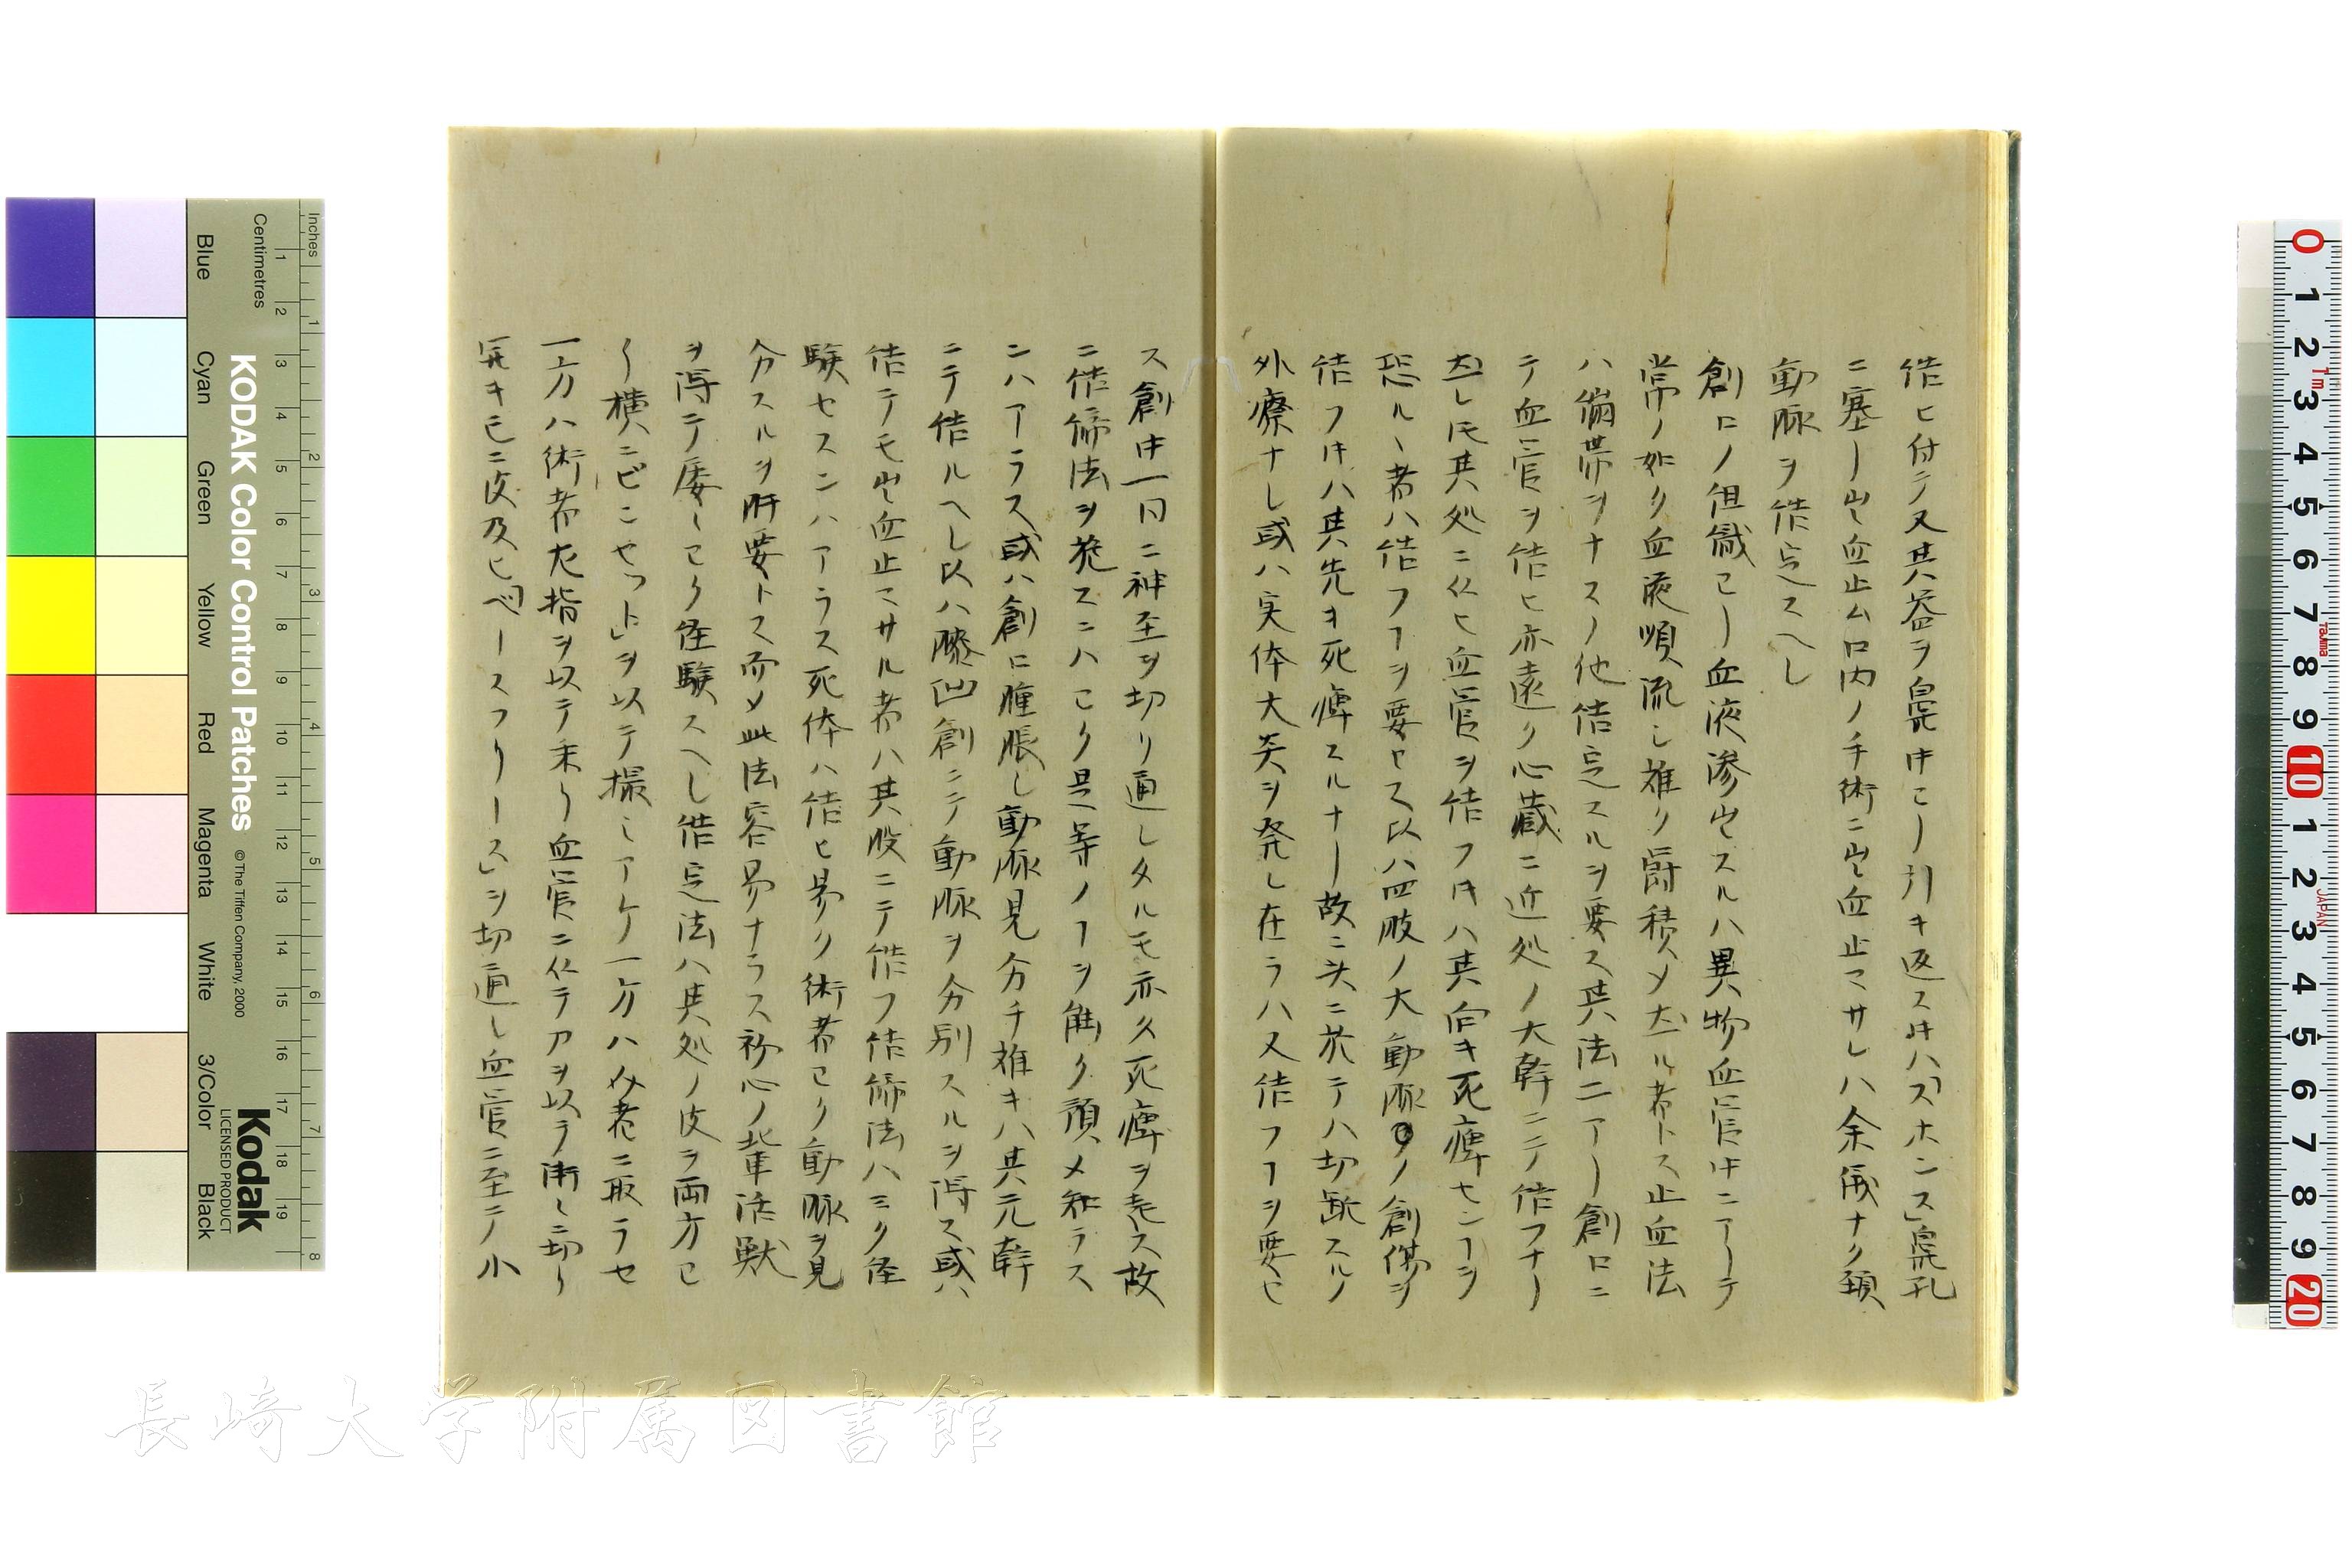 結ヒ付テ又其益ヲ鼻中ニ引キ返ス时ハ「スホンス」鼻孔
ニ塞リ出血止ム口内ノ手術ニ出血止マサレハ余儀ナク頚
動脈ヲ結定スヘし
創口ノ但緻ヨリ血液滲出スルハ異物血管中ニアリテ
常ノ如ク血液順流し難ク欝積メ出ル者トス止血法
ハ繃帯ヲナスノ他結定スルヲ要ス其法二アリ創口ニ
テ血管ヲ結ヒ亦遠ク心蔵ニ近処ノ大幹ニテ結フナリ
然レ𪜈其処ニ从ヒ血管ヲ結フ时ハ其向キ死痺センヿヲ
恐ルヽ者ハ結フヿヲ要セス以ハ四肢ノ大動脈ノ創傷ヲ
結フ时ハ其先キ死痺スルナリ故ニ失ニ於テハ切断スルノ
外療ナし或ハ実体大炎ヲ発し在ラハ又結フヿヲ要セ
ス創中一同ニ神至ヲ切リ通しタルモ亦久死痺ヲ起ス故
ニ結締法ヲ施スニハヨク是等ノヿヲ觧ク預メ知ラス
ンハアラス或ハ創口腫脹し動脈見分チ難キハ其元幹
ニテ結ルヘし以ハ膝凹創ニテ動脈ヲ分別スルヲ得ス或ハ
結テモ出血止マサル者ハ其股ニテ結フ結締法ハヨク経
験セスンハアラス死体ハ結ヒ易ク術者ヨク動脈ヲ見
分スルヲ肝要トス而メ此法容易ナラス初心ノ輩活獣
ヲ得テ委シヨク経験スヘし結定法ハ其処ノ皮ヲ両方ヨ
リ横ニ「ピンセット」ヲ以テ撮ミアケ一方ハ介者ニ取ラセ
一方ハ術者左指ヲ以テ乗リ血管ニ从テ刀ヲ以テ漸々ニ切リ
開キ已ニ皮及ヒ「ベースフリース」ヲ切通し血管ニ至テ小
KODAK Color Control Patches
©The Tiffen Company, 2000
Kodak
LICENSED PRODUCT
Inches
Centimetres
Blue
Cyan
Green
Yellow
Red
Magenta
White
3/Color
Black
長崎大学附属図書館